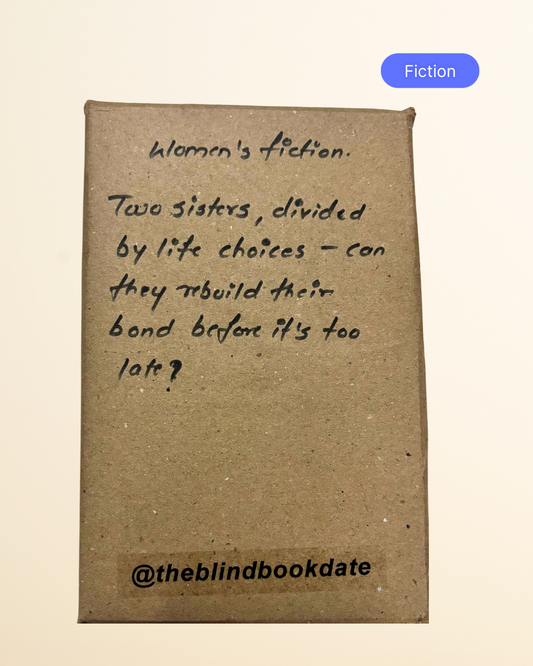 Fiction
Women's fiction.
Two sisters, divided
by life choices – can
they rebuild their
bond before it's too
late?
@theblindbookdate